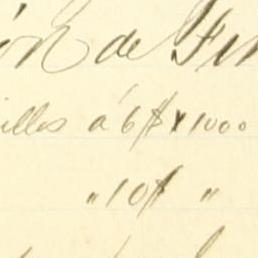 ón de Fin
illos á 6$ x 1000
" 10$ "